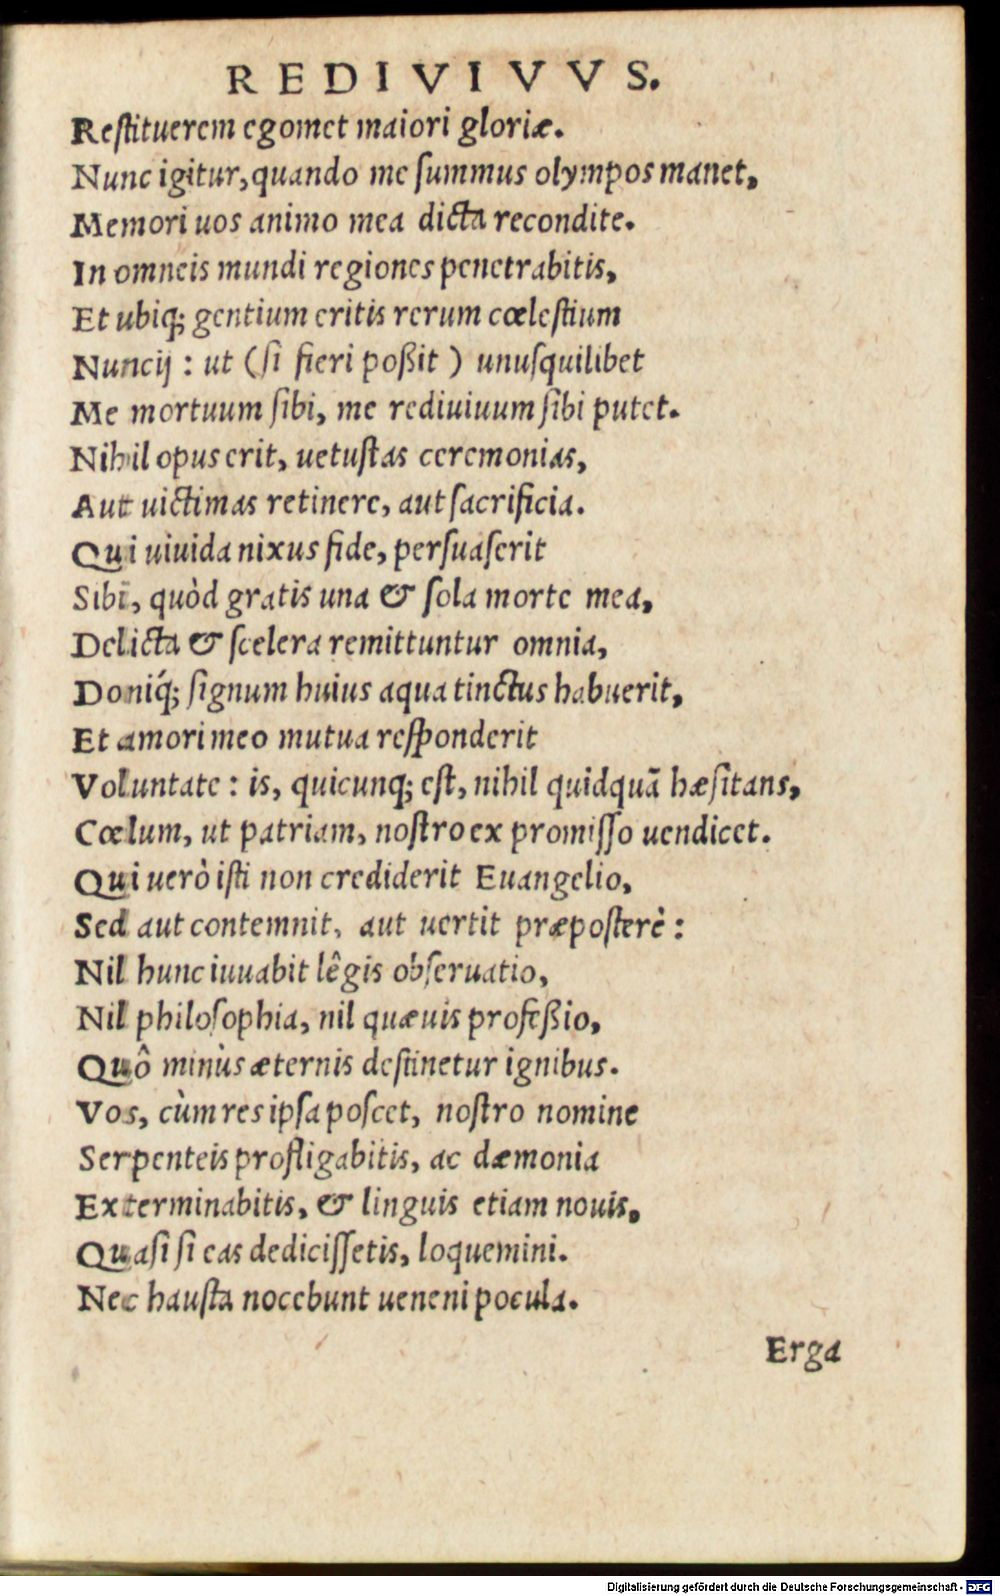 REDIVIVVS.
Restituerem egomet maiori gloriæ.
Nunc igitur, quando me summus olympos manet,
Memori uos animo mea dicta recondite.
In omneis mundi regiones penetrabitis,
Et ubiq; gentium eritis rerum cœlestium
Nuncij : ut (si fieri poßit ) unusquilibet
Me mortuum sibi, me rediuiuum sibi putet.
Nihil opus erit, uetustas ceremonias,
Aut uictimas retinere, aut sacrificia.
Qui uiuida nixus fide, persuaserit
Sibi, quòd gratis una & sola morte mea,
Delicta & scelera remittuntur omnia,
Doniq́; signum huius aqua tinctus habuerit,
Et amori meo mutua responderit
Voluntate : is, quicunq; est, nihil quidquā hæsitans,
Cœlum, ut patriam, nostro ex promisso uendicet.
Qui uerò isti non crediderit Euangelio,
Sed aut contemnit, aut uertit præposterè :
Nil hunc iuuabit lêgis obseruatio,
Nil philosophia, nil quæuis profeßio,
Quô minùs æternis destinetur ignibus.
Vos, cùm res ipsa poscet, nostro nomine
Serpenteis profligabitis, ac dæmonia
Exterminabitis, & linguis etiam nouis,
Quasi si eas dedicissetis, loquemini.
Nec hausta nocebunt ueneni pocula.
Erga
Digitalisierung gefördert durch die Deutsche Forschungsgemeinschaft - DFG